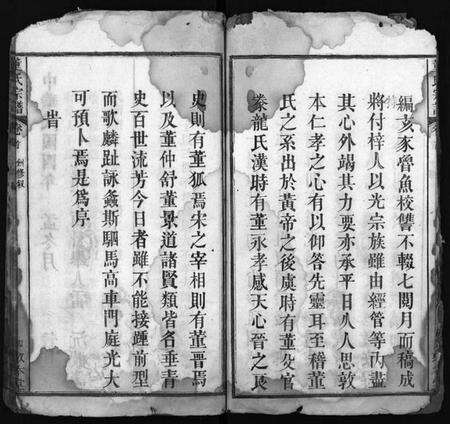 編亥家魯魚校讐不輟七閱月而稿成
將付梓人以光宗族雖由經管等內盡
其心外竭其力要亦承平日人人思敦
本仁孝之心有以仰答先靈耳至稽董
氏之系出於黃帝之後虞時有董父官
豢龍氏漢時有董永孝感天心晉之良
史則有董狐焉宋之宰相則有董晉焉
以及董仲舒董景道諸賢類皆名垂青
史百世流芳今日者雖不能接踵前型
而歌麟趾詠螽斯駟馬高車門庭光大
可預卜焉是爲序
旹
氏宗譜